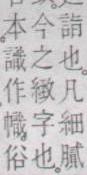 詣也。凡細膩
今之緻字也。
本識作幟。俗